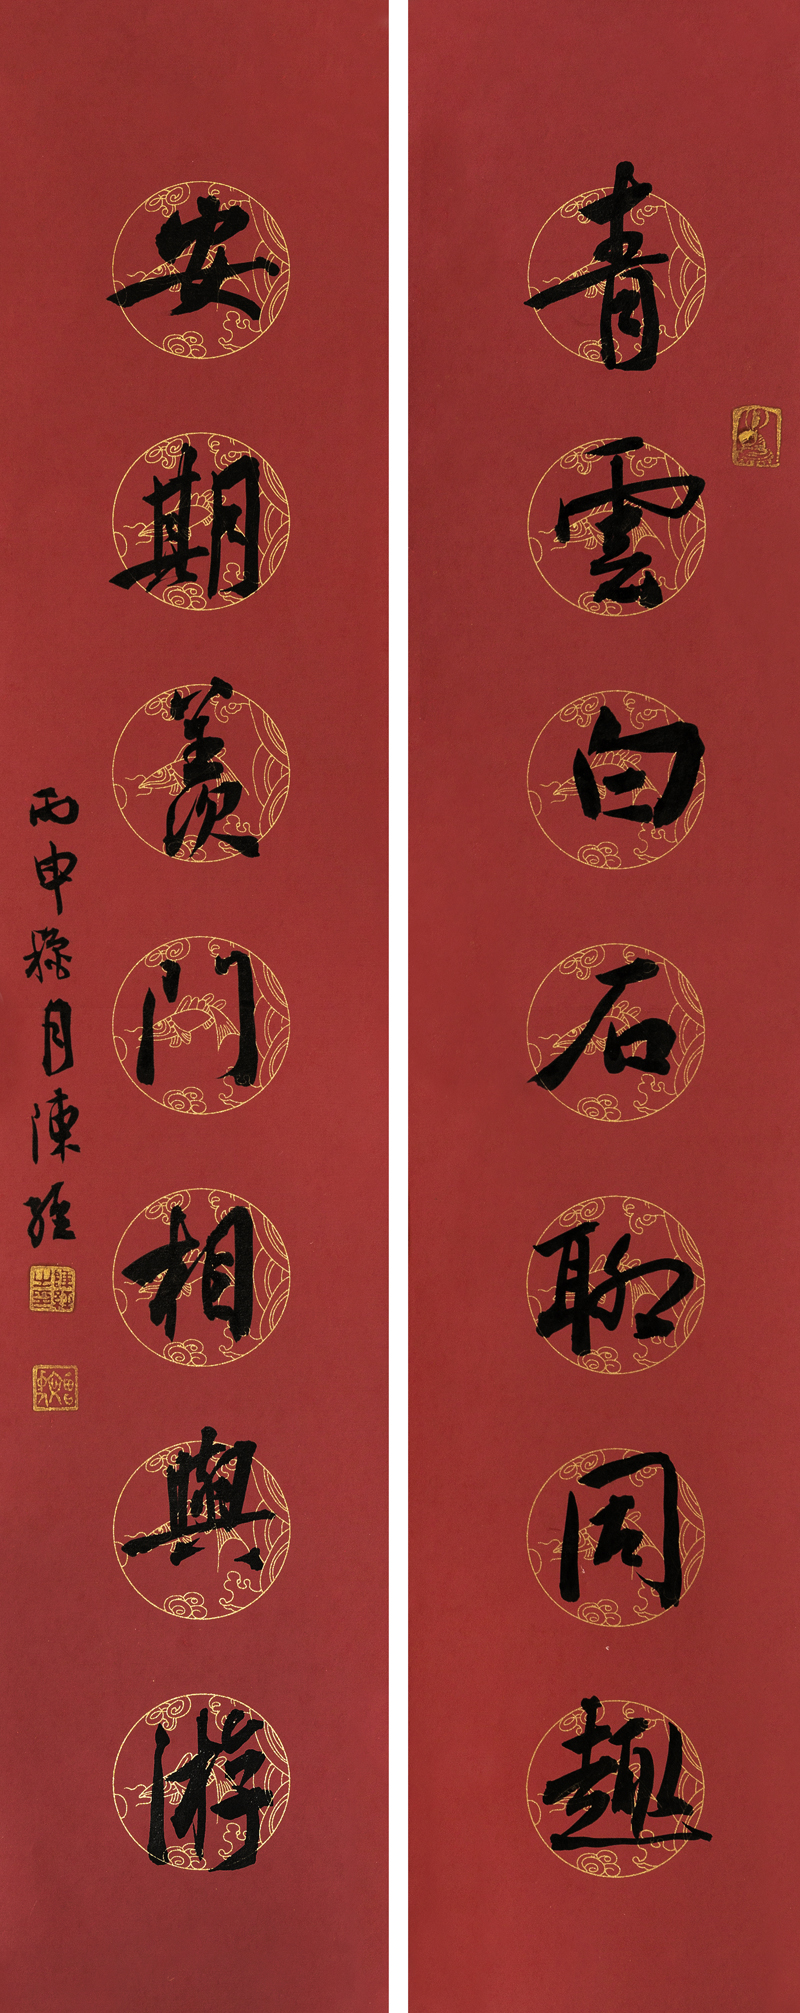 青雲白石聊同趣
安期羨門相與游
丙申穐月陳經